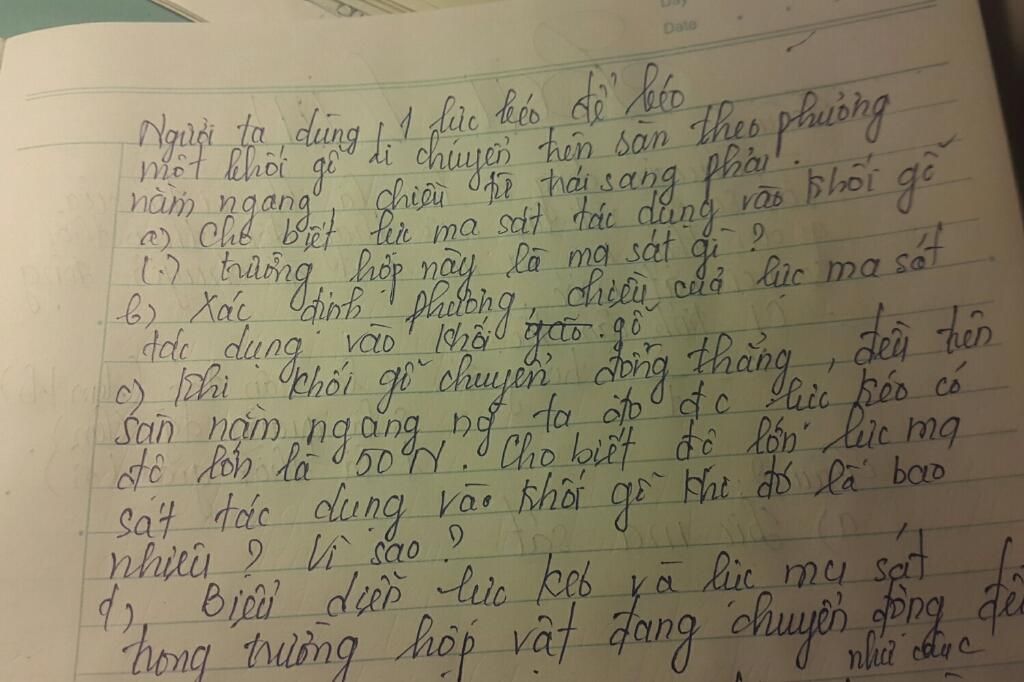 Day
Date
Người ta dùng 1 lực kéo để kéo
một khối gỗ di chuyển trên sàn theo phương
nằm ngang, chiều từ trái sang phải.
a) Cho biết lực ma sát tác dụng vào khối gỗ
(.) trường hợp này là ma sát gì?
b) Xác định phương, chiều của lực ma sát
tác dụng vào khối gỗ
c) Khi khối gỗ chuyển động thẳng, đều trên
sàn nằm ngang ng ta đo đc lực kéo có
độ lớn là 50N. Cho biết độ lớn lực ma
sát tác dụng vào khối gỗ khi đó là bao
nhiêu? Vì sao?
d) Biểu diễn lực kéo và lực ma sát
trong trường hợp vật đang chuyển động đều
như